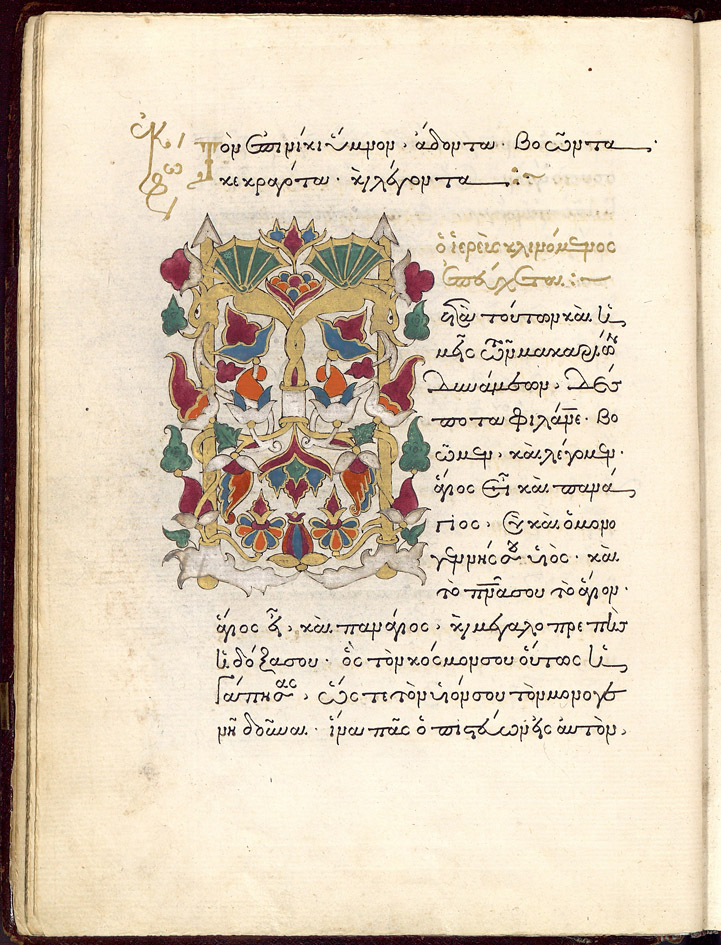 ἐκφώ
Τὸν ἐπινίκι ὕμνον, ἄδοντα· βοῶντα·
κεκραγότα· κὶ λέγοντα
ὁ ἱερεὺς κλινόμενος
ἐπεύχεται:
Μετὰ τούτων καὶ ἡ
μεῖς τῶν μακαρίων
δυνάμεων, Δέσ
ποτα φιλάνε· βο
ῶμεν, καὶ λέγομεν·
ἅγιος εἶ καὶ πανά
γιος, σὺ καὶ ὁ μονο
γεννής σου υἱὸς· καὶ
τὸ πνα σου τὸ ἅγιον·
ἅγιος εἶ, καὶ πανάγιος, κὶ μεγαλοπρεπὴς
ἡ δόξα σου· ὃς τὸν κόσμον σου οὕτως ἠ
γάπησας, ὥς τε τὸν υἱόν σου τὸν μονογε
νῆ δοῦναι· ἵνα πᾶς ὁ πιστεύων εἰς αὐτὸν,